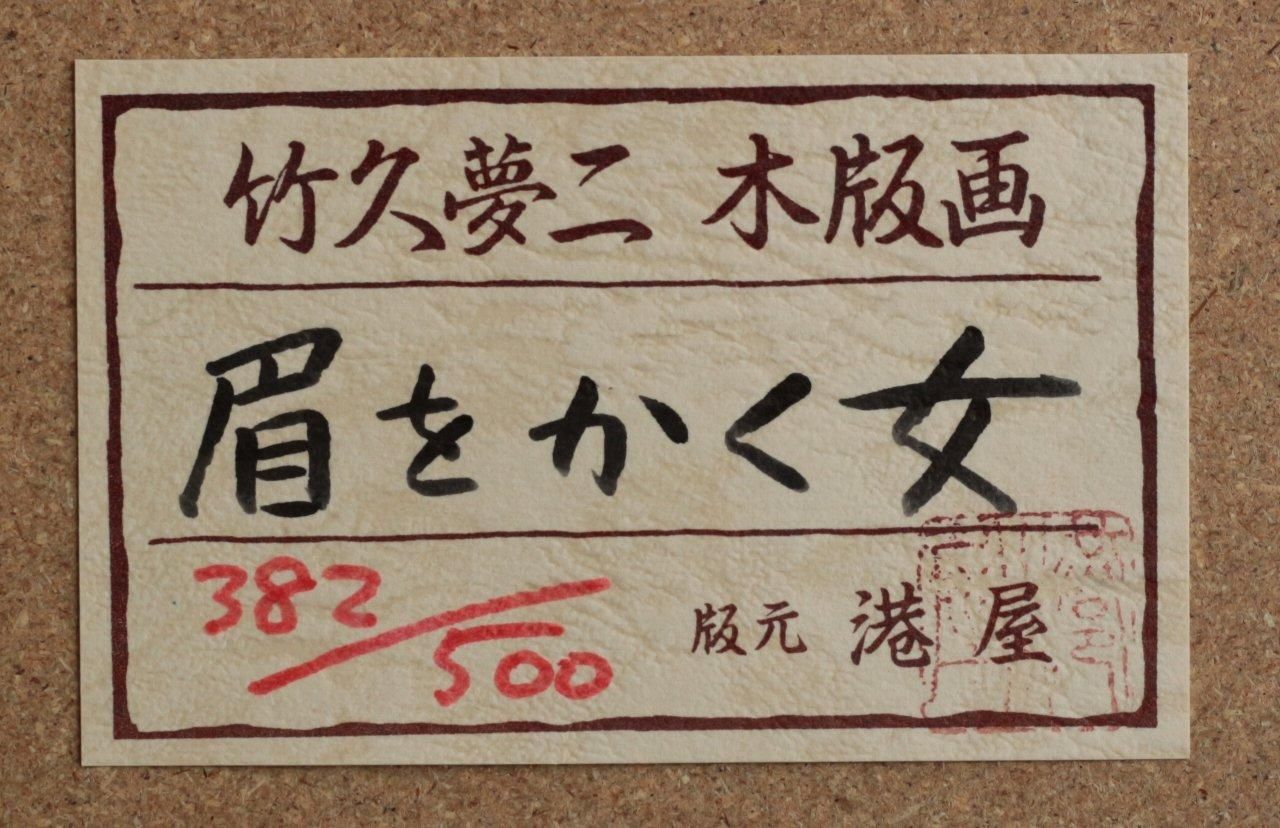 竹久夢二 木版画
眉をかく女
382/500
版元 港屋